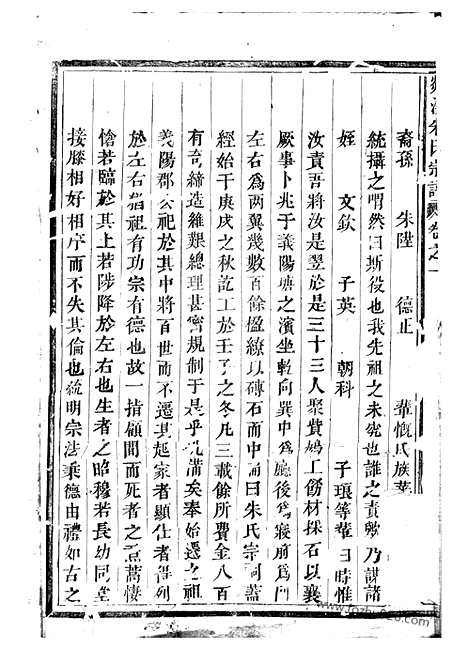 朱氏宗譜 卷之一
裔孫 朱陞 德正 輩慨氏族葉
統攝之喟然曰斯役也我先祖之未究也誰之責歟乃謀諸
姪 文欽 子英 朝科 子瑻等輩曰時惟
汝責吾將汝是翌於是三十三人聚貲鳩工飭材採石以襄
厥事卜兆于義陽塘之濱坐乾向巽中爲廳後爲寢前爲門
左右爲兩翼幾數百餘楹繚以磚石而中而曰朱氏宗祠蓋
經始于庚戌之秋訖工於壬子之冬凡三載餘所費金八百
有奇締造維艱總理甚密規制于是乎光滿矣奉始遷之祖
義陽郡公祀於其中將百世而不遷其起家者顯仕者得列
於左右猶祖有功宗有德也故一揖顧間而死者之焄蒿悽
愴若臨於其上若陟降於左右也生者之昭穆若長幼同堂
接膝相好相序而不失其倫也統明宗法秉德由禮如古之